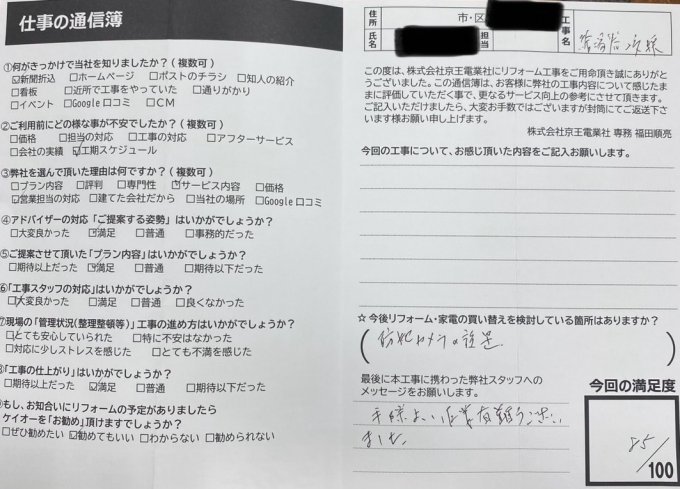 仕事の通信簿
①何がきっかけで当社を知りましたか？(複数可)
☑新聞折込 □ホームページ □ポストのチラシ □知人の紹介
□看板 □近所で工事をやっていた □通りがかり
□イベント □Google口コミ □CM
②ご利用前にどの様な事が不安でしたか？(複数可)
□価格 □担当の対応 □工事の対応 □アフターサービス
□会社の実績 ☑工期スケジュール
③弊社を選んで頂いた理由は何ですか？(複数可)
□プラン内容 □評判 □専門性 ☑サービス内容 □価格
☑営業担当の対応 □建てた会社だから □当社の場所 □Google口コミ
④アドバイザーの対応「ご提案する姿勢」はいかがでしょうか？
□大変良かった ☑満足 □普通 □事務的だった
⑤ご提案させて頂いた「プラン内容」はいかがでしょうか？
□期待以上だった ☑満足 □普通 □期待以下だった
⑥「工事スタッフの対応」はいかがでしょうか？
☑大変良かった □満足 □普通 □良くなかった
⑦現場の「管理状況(整理整頓等)」工事の進め方はいかがでしょうか？
☑とても安心していられた □特に不安はなかった
□対応に少しストレスを感じた □とても不満を感じた
「工事の仕上がり」はいかがでしょうか？
□期待以上だった ☑満足 □普通 □期待以下だった
もし、お知合いにリフォームの予定がありましたら
ケイオーを「お勧め」頂けますでしょうか？
□ぜひ勧めたい ☑勧めてもいい □わからない □勧められない
住所
市・区
氏名
担当
工事名
この度は、株式会社京王電業社にリフォーム工事をご用命頂き誠にありがと
うございました。この通信簿は、お客様に弊社の工事内容について感じたま
まに評価していただく事で、更なるサービス向上の参考にさせて頂きます。
ご記入いただけましたら、大変お手数ではございますが封筒にてご返送下さ
います様お願い申し上げます。
株式会社京王電業社 専務 福田順亮
今回の工事について、お感じ頂いた内容をご記入お願いします。
☆今後リフォーム・家電の買い替えを検討している箇所はありますか？
防犯カメラの設置
最後に本工事に携わった弊社スタッフへの
メッセージをお願いします。
手際よい作業有難うござい
ました
今回の満足度
85/100